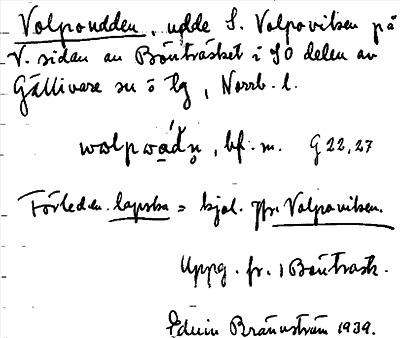 Volpoudden, udde S. Volpoviken på
V. sidan av Bönträsket i SO delen av
Gällivare sn o tg, Norrb. l.
bf. m. G 22, 27
Förleden lapska = kjol. Jfr Volpoviken.
Uppg. fr. i Bönträsk.
Edvin Brännström 1939.